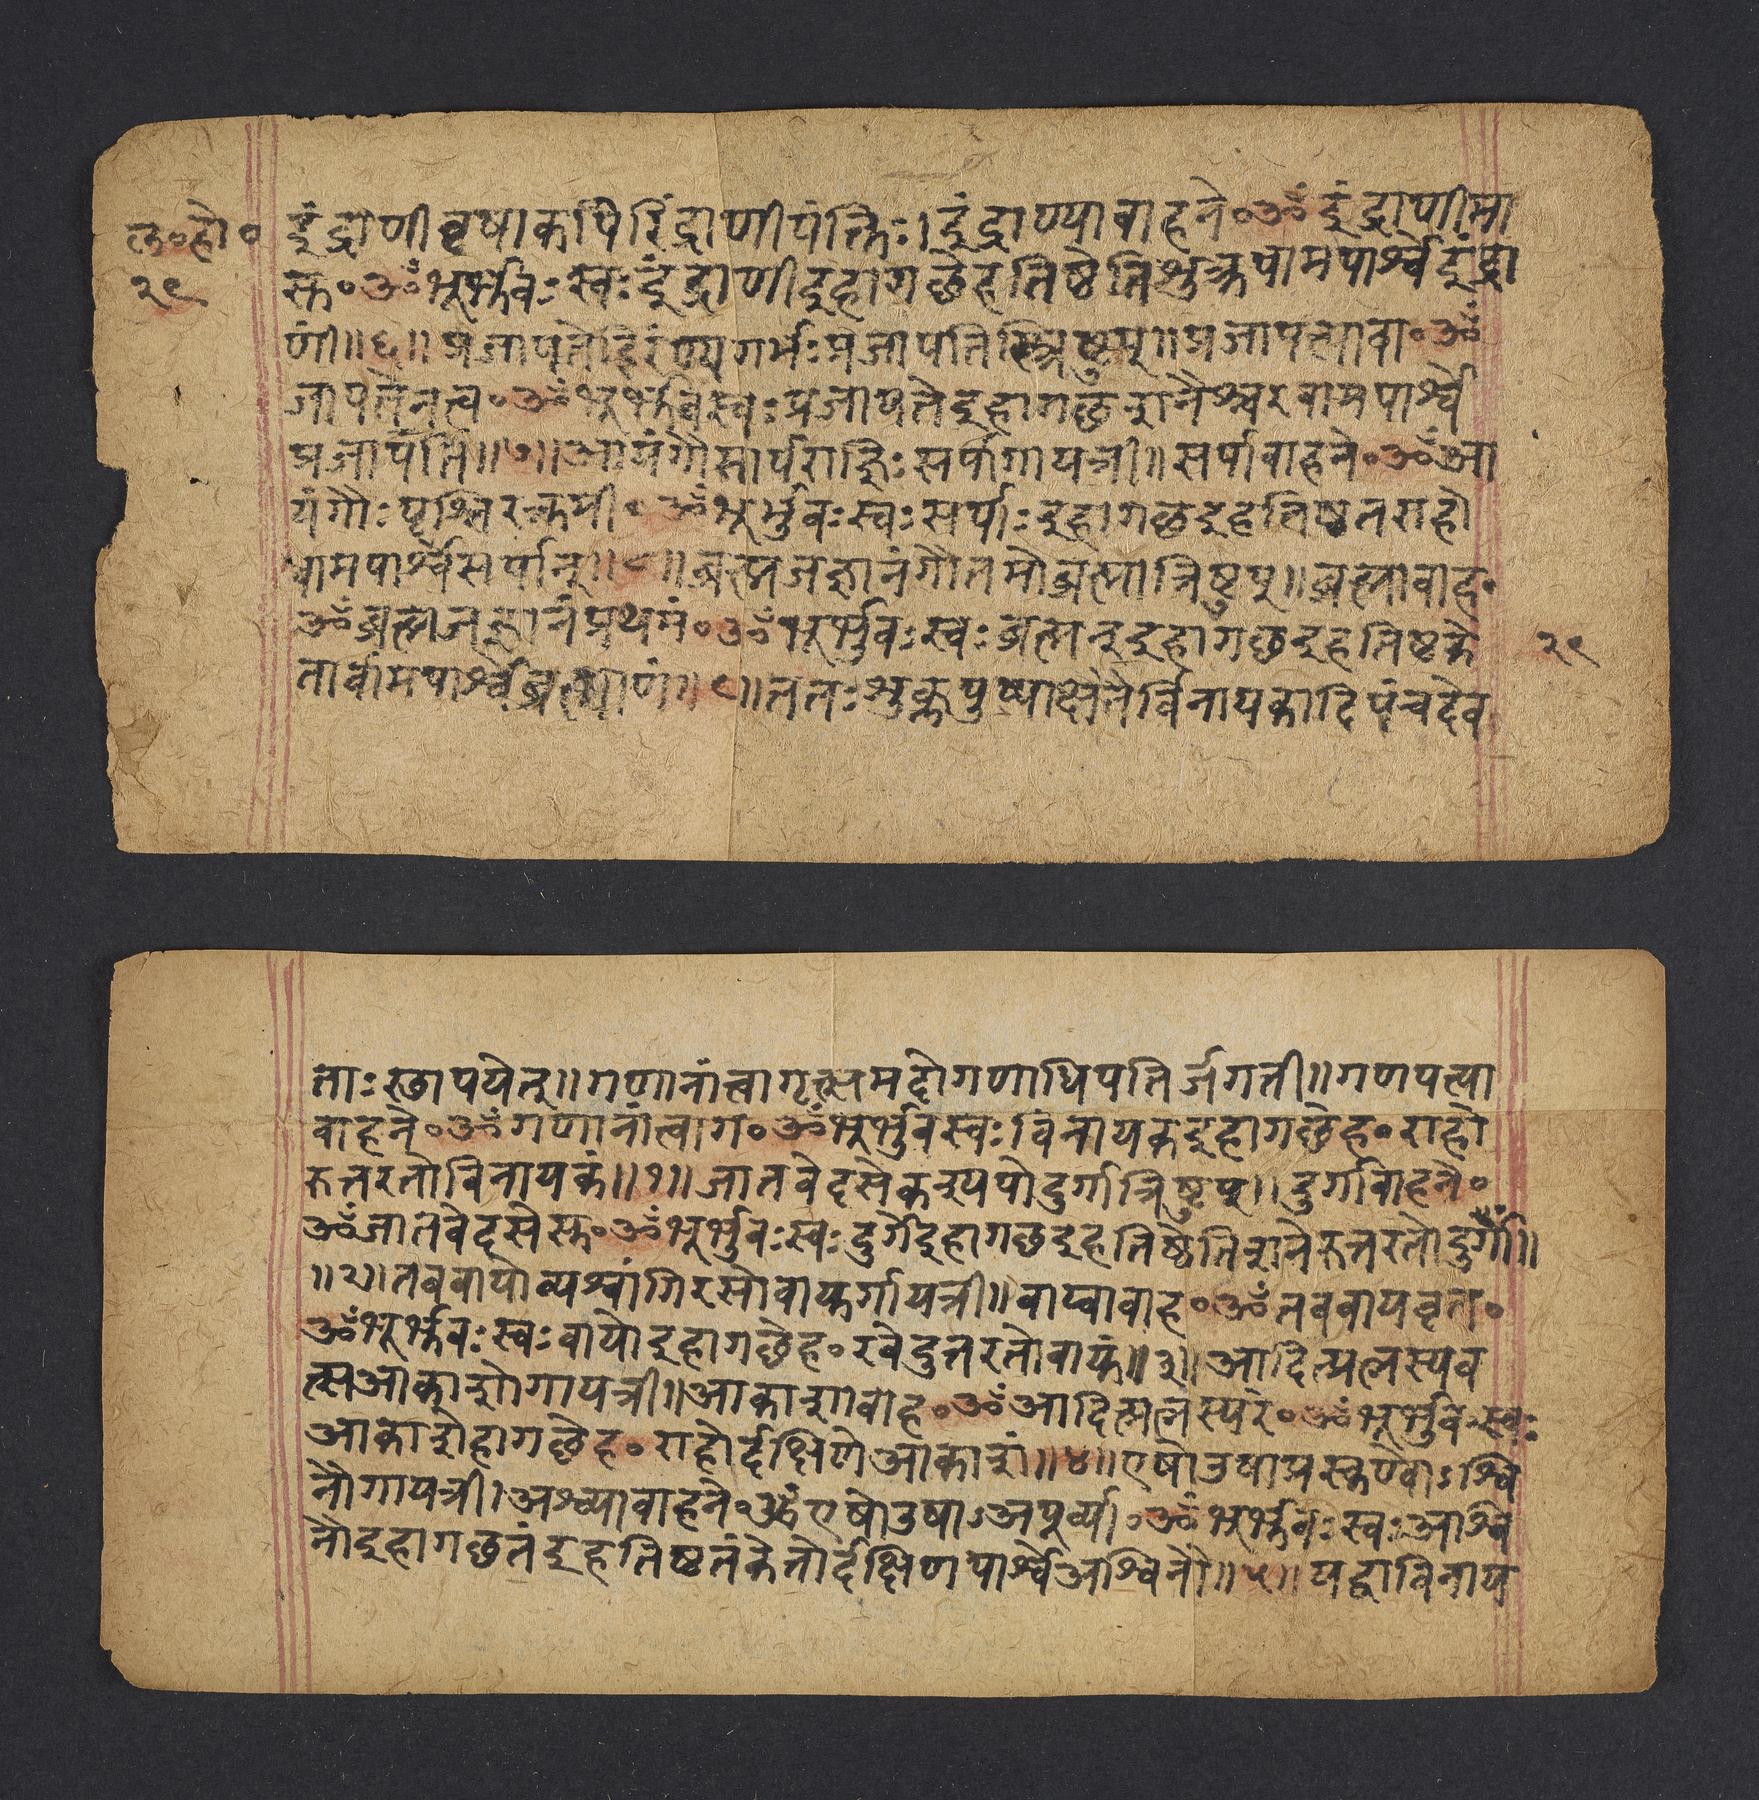 ल॰हो॰
२९
इंद्राणीवृषाकपिरिंद्राणीपंक्तिः। इंद्राण्यावाहने॰ॐ इंद्राणीमा
स्त॰ॐभूर्भुवः स्वः इंद्राणीइहागछेहतिष्ठेतिशुक्रपामपार्श्वेइंद्रा
णीं॥६॥ प्रजापतेहिरंण्यगर्भः प्रजापतिस्त्रिष्टुप्॥प्रजापत्यावा॰ॐ
जापतेनत्व॰ॐ भूर्भुवस्वः प्रजापतेइहागछशनैश्चरवामपार्श्वे
प्रजापतिं॥७॥आयंगौसार्पराज्ञिः सर्पागायत्री॥ सर्पावाहने॰ॐआ
यंगौः पृश्निरक्रमी॰ ॐभूर्भुवः स्वः सर्पाः इहागछइहतिष्ठतराहो
र्वामपार्श्वेसर्पान्॥८॥ब्रह्मजज्ञानंगौतमोब्रह्मात्रिष्टुप्॥ब्रह्मावाह॰
ॐब्रह्मजज्ञानंप्रथमं॰ॐभूर्भुवः स्वः ब्रह्मन्इहागछइहतिष्ठके
तोर्वामपार्श्वेब्रह्माणं॥९॥ततः शुक्लपुष्पाक्षतैर्विनायकादिपंचदेव
२९
ताः स्थापयेत्॥गणानांत्वागृत्समदोगणाधिपतिर्जगती॥गणपत्या
वाहने॰ॐगणानांत्वाग॰ॐभूर्भुवस्वः विनायकइहागछेह॰राहो
रुत्तरतोविनायकं॥१॥जातवेदसेकश्यपोदुर्गात्रिष्टुप्॥दुर्गावाहने॰
ॐजातवेदसेस्त॰ॐभूर्भुवः स्वः दुर्गेइहागछइहतिष्ठेतिशनेरुत्तरतोदुर्गां॥
॥२॥तववायोव्यश्वांगिरसोवायुर्गायत्री॥वाय्वावाह॰ॐतववायवृत॰
ॐभूर्भुवः स्वः वायोइहागछेह॰रवेरुत्तरतोवायुं॥३॥आदित्प्रत्नस्यव
त्सआकाशोगायत्री॥आकाशावाह॰ॐआदित्प्रत्नस्यरे॰ॐभूर्भुवः स्वः
आकाशेहागछेह॰राहोर्दक्षिणेआकाशं॥४॥एषोउषाप्रस्कण्वोऽश्वि
नौगायत्री।अश्व्यावाहने॰ॐएषोउषाऽअपूर्व्या॰ॐभूर्भुवः स्वः अश्वि
नौइहागछतंइहतिष्ठतंकेतोर्दक्षिणपार्श्वेअश्विनौ॥५॥यद्वाविनाय